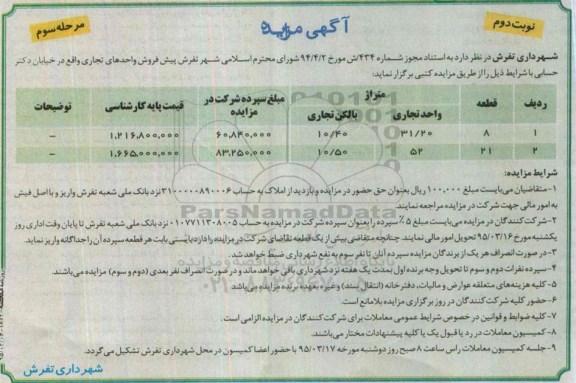 نوبت دوم
آگهی مزایده
مرحله سوم
شهرداری تفرش در نظر دارد به استناد مجوز شماره ۴۳۴/ش مورخ ۹۴/۴/۲ شورای محترم اسلامی شهر تفرش پیش فروش واحدهای تجاری واقع در خیابان دکتر
حسابی با شرایط ذیل را از طریق مزایده کتبی برگزار نماید:
ردیف قطعه متراژ مبلغ سپرده شرکت در مزایده قیمت پایه کارشناسی توضیحات
واحد تجاری بالکن تجاری
۱ ۸ ۳۱/۲۰ ۱۰/۴۰ ۶۰,۸۴۰,۰۰۰ ۱,۲۱۶,۸۰۰,۰۰۰ –
۲ ۲۱ ۵۲ ۱۰/۵۰ ۸۳,۲۵۰,۰۰۰ ۱,۶۶۵,۰۰۰,۰۰۰ –
شرایط مزایده:
۱- متقاضیان می‌بایست مبلغ ۱۰۰,۰۰۰ ریال بعنوان حق حضور در مزایده و بازدید از املاک به حساب ۳۱۰۰۰۰۰۸۹۰۰۰۶ نزد بانک ملی شعبه تفرش واریز و با اصل فیش
به امور مالی جهت شرکت در مزایده مراجعه نمایند.
۲- شرکت کنندگان در مزایده می‌بایست مبلغ ۵٪ سپرده را بعنوان سپرده شرکت در مزایده به حساب ۰۱۰۷۷۱۱۳۰۸۰۰۵ نزد بانک ملی شعبه تفرش تا پایان وقت اداری روز
یکشنبه مورخ ۹۵/۰۳/۱۶ تحویل امور مالی نمایند. چنانچه متقاضی بیش از یک قطعه تقاضای شرکت در مزایده را دارد بایستی بابت هر قطعه سپرده آن را جداگانه واریز نماید.
۳- در صورت انصراف هر یک از برندگان مزایده سپرده آنان تا نفر سوم به نفع شهرداری ضبط خواهد شد.
۴- سپرده نفرات دوم و سوم تا تحویل وجه برنده اول بمدت یک هفته نزد شهرداری باقی خواهد ماند و در صورت انصراف نفر بعدی (دوم و سوم) مزایده می‌باشند.
۵- کلیه هزینه‌های متعلقه عوارض و مالیات، دفترخانه (انتقال سند) و غیره بعهده برنده مزایده می‌باشد.
۶- حضور کلیه شرکت کنندگان در روز برگزاری مزایده بلامانع است.
۷- کلیه ضوابط و قوانین در خصوص شرایط عمومی معاملات برای شرکت کنندگان در مزایده الزامی است.
۸- کمیسیون معاملات در رد یا قبول یک یا کلیه پیشنهادات مختار می‌باشند.
۹- جلسه کمیسیون معاملات راس ساعت ۸ صبح روز دوشنبه مورخه ۹۵/۰۳/۱۷ با حضور اعضا کمیسیون در محل شهرداری تفرش تشکیل می‌گردد.
شهرداری تفرش
ParsNamadData